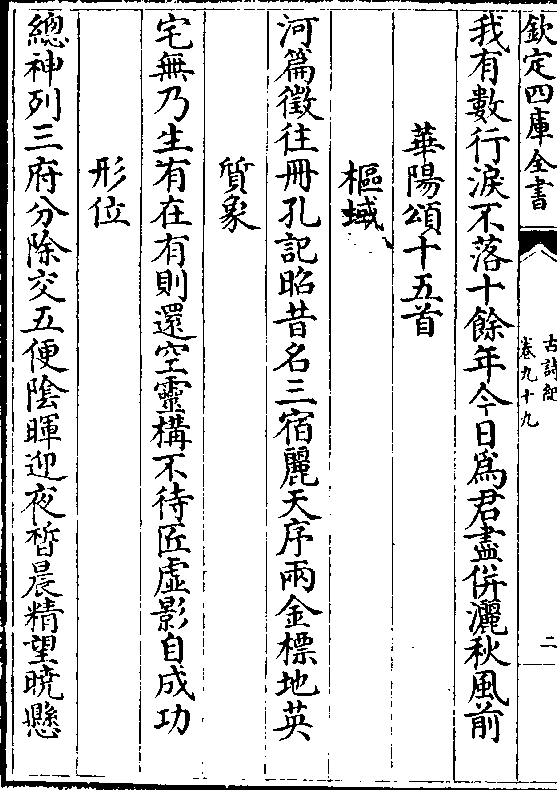 欽定四庫全書
古詩紀
卷九十九
二
我有數行淚不落十餘年今日為君盡併灑秋風前
華陽頌十五首
樞域
河篇徵往冊孔記昭昔名三宿麗天序兩金標地英
質象
宅無乃生有在有則還空靈構不待匠虛影自成功
形位
總神列三府分除交五便陰暉迎夜晳晨精望曉懸